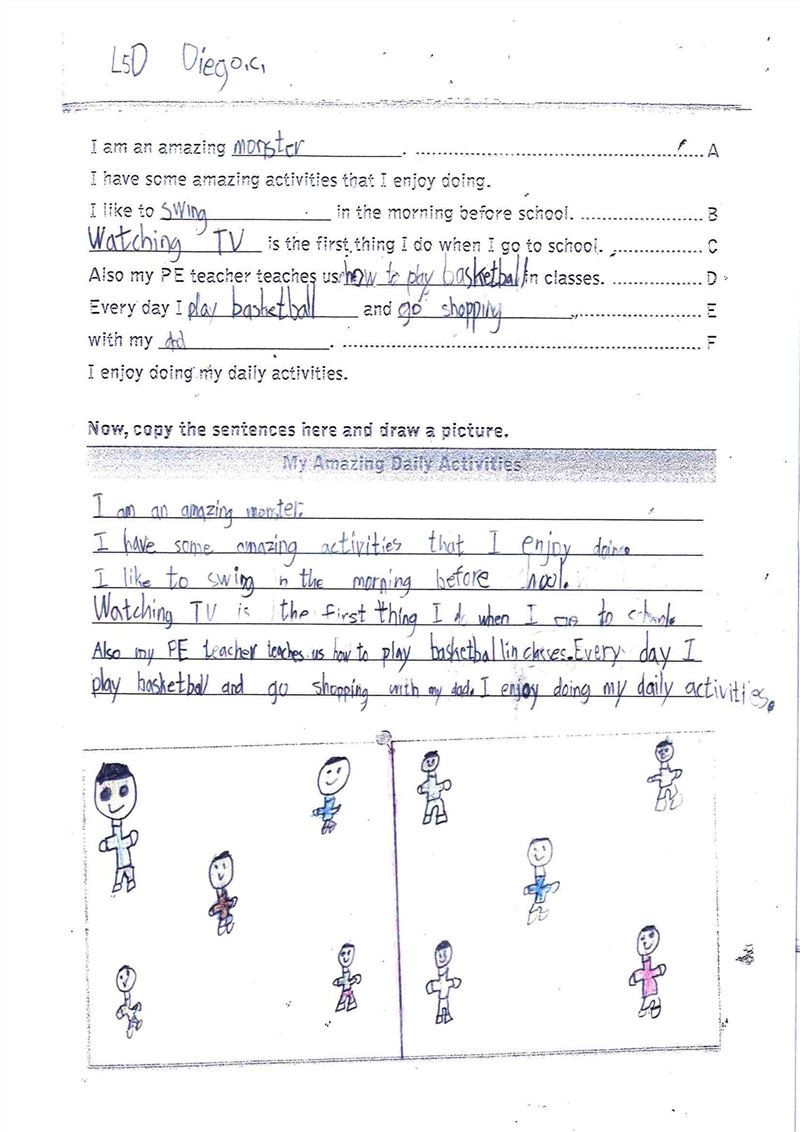 L5D Diego.C.
I am an amazing monster. A
I have some amazing activities that I enjoy doing.
I like to swing in the morning before school. B
Watching TV is the first thing I do when I go to school. C
Also my PE teacher teaches us how to play basketball in classes. D
Every day I play basketball and go shopping E
with my dad. F
I enjoy doing my daily activities.
Now, copy the sentences here and draw a picture.
My Amazing Daily Activities
I am an amazing monster.
I have some amazing activities that I enjoy doing.
I like to swing in the morning before hool.
Watching TV is the first thing I do when I to
Also my PE teacher teaches us how to play basketball in classes. Every day I
play basketball and go shopping with my dad. I enjoy doing my daily activities.